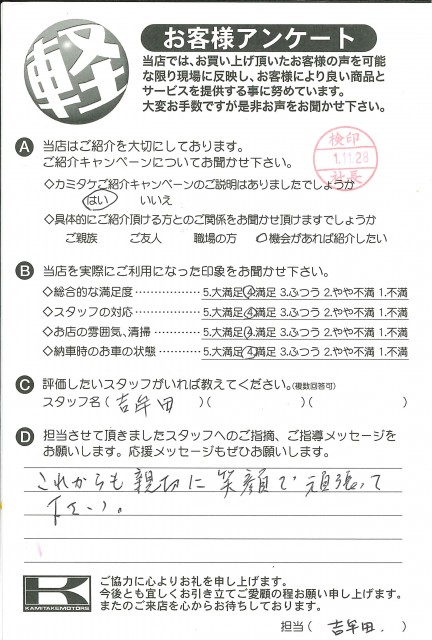 軽
お客様アンケート
当店では、お買い上げ頂いたお客様の声を可能
な限り現場に反映し、お客様により良い商品と
サービスを提供する事に努めています。
大変お手数ですが是非お声をお聞かせ下さい。
A 当店はご紹介を大切にしております。
ご紹介キャンペーンについてお聞かせ下さい。
検印
1.11.28
社長
◇カミタケご紹介キャンペーンのご説明はありましたでしょうか
はい いいえ
◇具体的にご紹介頂ける方とのご関係をお聞かせ頂けますでしょうか
ご親族 ご友人 職場の方 機会があれば紹介したい
B 当店を実際にご利用になった印象をお聞かせ下さい。
◇総合的な満足度 ……………… 5.大満足 4.満足 3.ふつう 2.やや不満 1.不満
◇スタッフの対応 ……………… 5.大満足 4.満足 3.ふつう 2.やや不満 1.不満
◇お店の雰囲気、清掃 ………… 5.大満足 4.満足 3.ふつう 2.やや不満 1.不満
◇納車時のお車の状態 ………… 5.大満足 4.満足 3.ふつう 2.やや不満 1.不満
C 評価したいスタッフがいれば教えてください。(複数回答可)
スタッフ名 ( 吉牟田 )( )( )
D 担当させて頂きましたスタッフへのご指摘、ご指導メッセージを
お願いします。応援メッセージもぜひお願いします。
これからも親切に笑顔で頑張って
下さい。
K
KAMITAKEMOTORS
ご協力に心よりお礼を申し上げます。
今後とも宜しくお引き立てご愛顧の程お願い申し上げます。
またのご来店を心からお待ちしております。
担当 ( 吉牟田. )